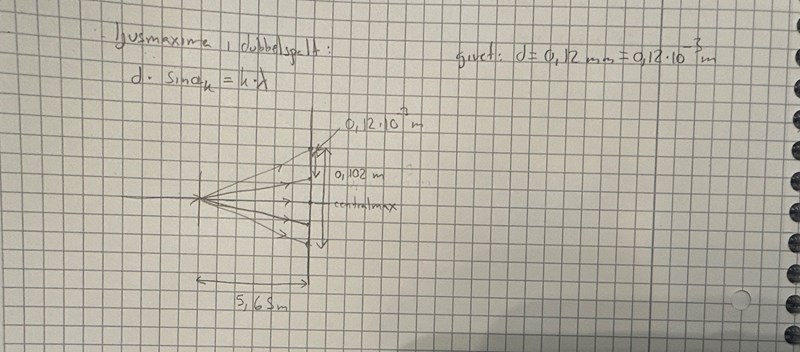 Ljusmaxima i dubbelspalt:
d · sinαₖ = k·λ
givet: d = 0,12 mm = 0,12·10⁻³ m
0,12·10⁻³ m
0,102 m
centralmax
5,65m